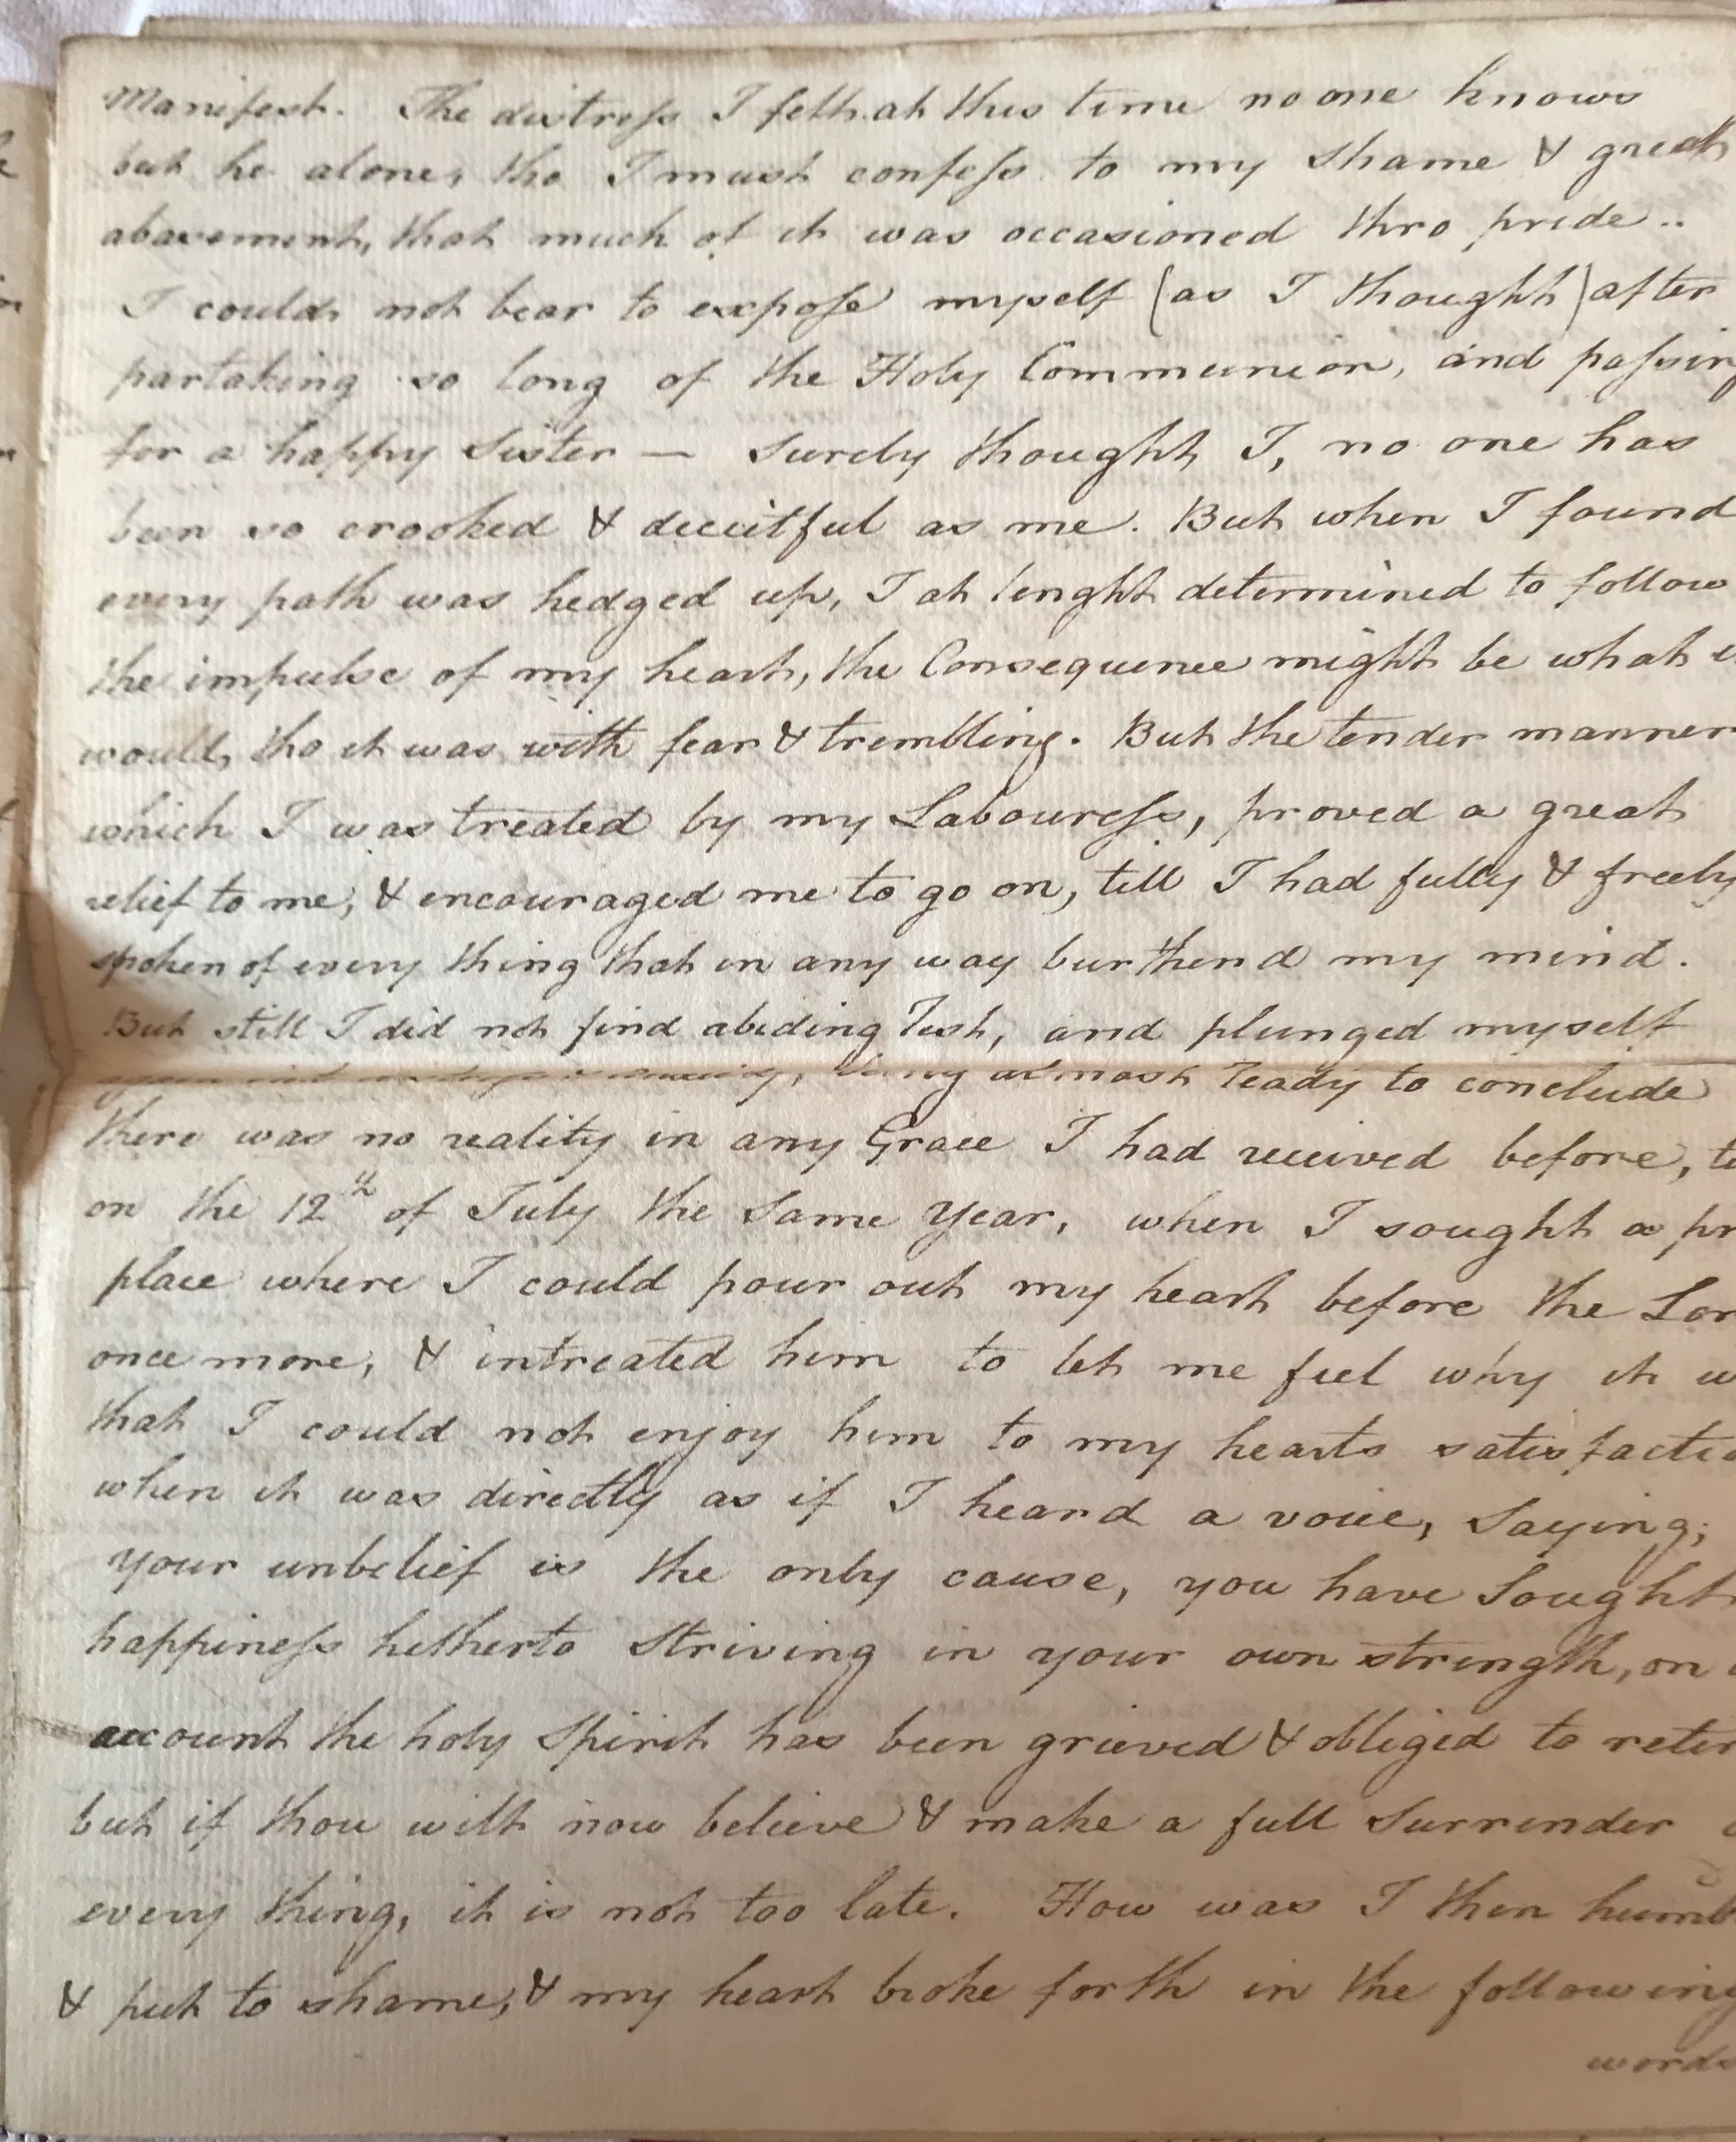 Manifest. The distress I felt at this time no one knows
but he alone, tho I must confess to my shame & great
abasement, that much of it was occasioned thro pride..
I could not bear to expose myself (as I thought) after
partaking so long of the Holy Communion, and passing
for a happy Sister — Surely thought I, no one has
been so crooked & deceitful as me. But when I found
every path was hedged up, I at lenght determined to follow
the impulse of my heart, the Consequence might be what
would, tho it was with fear & trembling. But the tender manner
which I was treated by my Labouress, proved a great
relief to me, & encouraged me to go on, till I had fully & freely
spoken of every thing that in any way burthend my mind.
But still I did not find abiding rest, and plunged myself
being almost ready to conclude
there was no reality in any Grace I had received before,
on the 12th of July the Same Year, when I sought a
place where I could pour out my heart before the
once more, & intreated him to let me feel why it
that I could not enjoy him to my hearts
when it was directly as if I heard a voice, Saying;
your unbelief is the only cause, you have Sought
happiness hetherto Striving in your own strength, on
account the holy Spirit has been grieved & obliged to
but if thou wilt now believe & make a full Surrender
every thing, it is not too late. How was I then
& put to shame, & my heart broke forth in the following
words